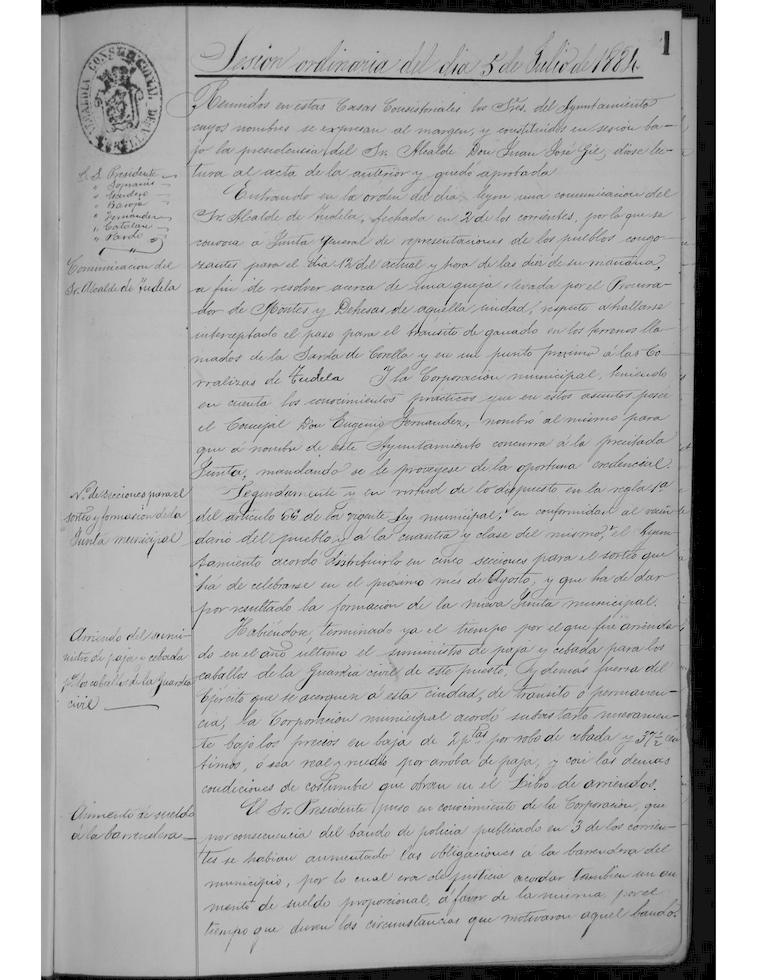 1
Sesión ordinaria del dia 5 de Julio de 1884
Reunidos en estas Casas Consistoriales los Sres. del Ayuntamiento
cuyos nombres se expresan al margen, y constituidos en sesión ba-
jo la presidencia del Sr. Alcalde Don Juan José Gil, diose lec-
tura al acta de la anterior y quedó aprobada
S. S. Presidente
" Soprani
" Escudero
" Baroja
" Fernandez
" Catalan
" Pardo
Comunicacion del
Sr. Alcalde de Tudela
Entrando en la orden del dia, leyose una comunicacion del
Sr. Alcalde de Tudela, fechada en 2 de los corrientes, por la que se
convoca a Junta general de representaciones de los pueblos congo-
zantes para el dia 12 del actual y hora de las diez de su mañana,
a fin de resolver acerca de una queja elevada por el Procura-
dor de Montes y Dehesas de aquella ciudad, respecto a hallarse
interceptado el paso para el transito de ganado en los terrenos lla-
mados de la Sarda de Corella y en un punto proximo á las Co-
rralizas de Tudela Y la Corporación municipal, teniendo
en cuenta los conocimientos practicos que en estos asuntos posee
el Concejal Don Eugenio Fernandez, nombró al mismo para
que á nombre de este Ayuntamiento concurra á la precitada
Junta, mandando se le proveyese de la oportuna credencial.
No. de secciones para el
sorteo y formación de la
Junta municipal
Seguidamente y en virtud de lo dispuesto en la regla 1a
del articulo 66 de la vigente Ley municipal, en conformidad al vecin-
dario del pueblo y á la cuantia y clase del mismo, el Ayun-
tamiento acordó distribuirlo en cinco secciones para el sorteo que
há de celebrarse en el proximo mes de Agosto, y que ha de dar
por resultado la formación de la nueva Junta municipal.
Arriendo del sumi-
nistro de paja y cebada
pa. los caballos de la Guardia
civil
Habiendose terminado ya el tiempo por el que fué arrenda-
do en el año ultimo el suministro de paja y cebada para los
caballos de la Guardia civil de este puesto, y demas fuerza del
Ejercito que se acerquen á esta ciudad, de transito ó permanen-
cia, la Corporación municipal acordó subastarlo nuevamen-
te bajo los precios en baja de 2 ptas por robo de cebada y 37 1/2 cen-
timos, ó sea real y medio por arroba de paja, y con las demas
condiciones de costumbre que obran en el Libro de arriendos.
Aumento de sueldo
á la barrendera
El Sr. Presidente puso en conocimiento de la Corporación, que
por consecuencia del bando de policia publicado en 3 de los corrien-
tes se habian aumentado las obligaciones á la barrendera del
municipio, por lo cual era de justicia acordar tambien un au-
mento de sueldo proporcional, á favor de la misma, por el
tiempo que duren las circunstancias que motivaron aquel bando.